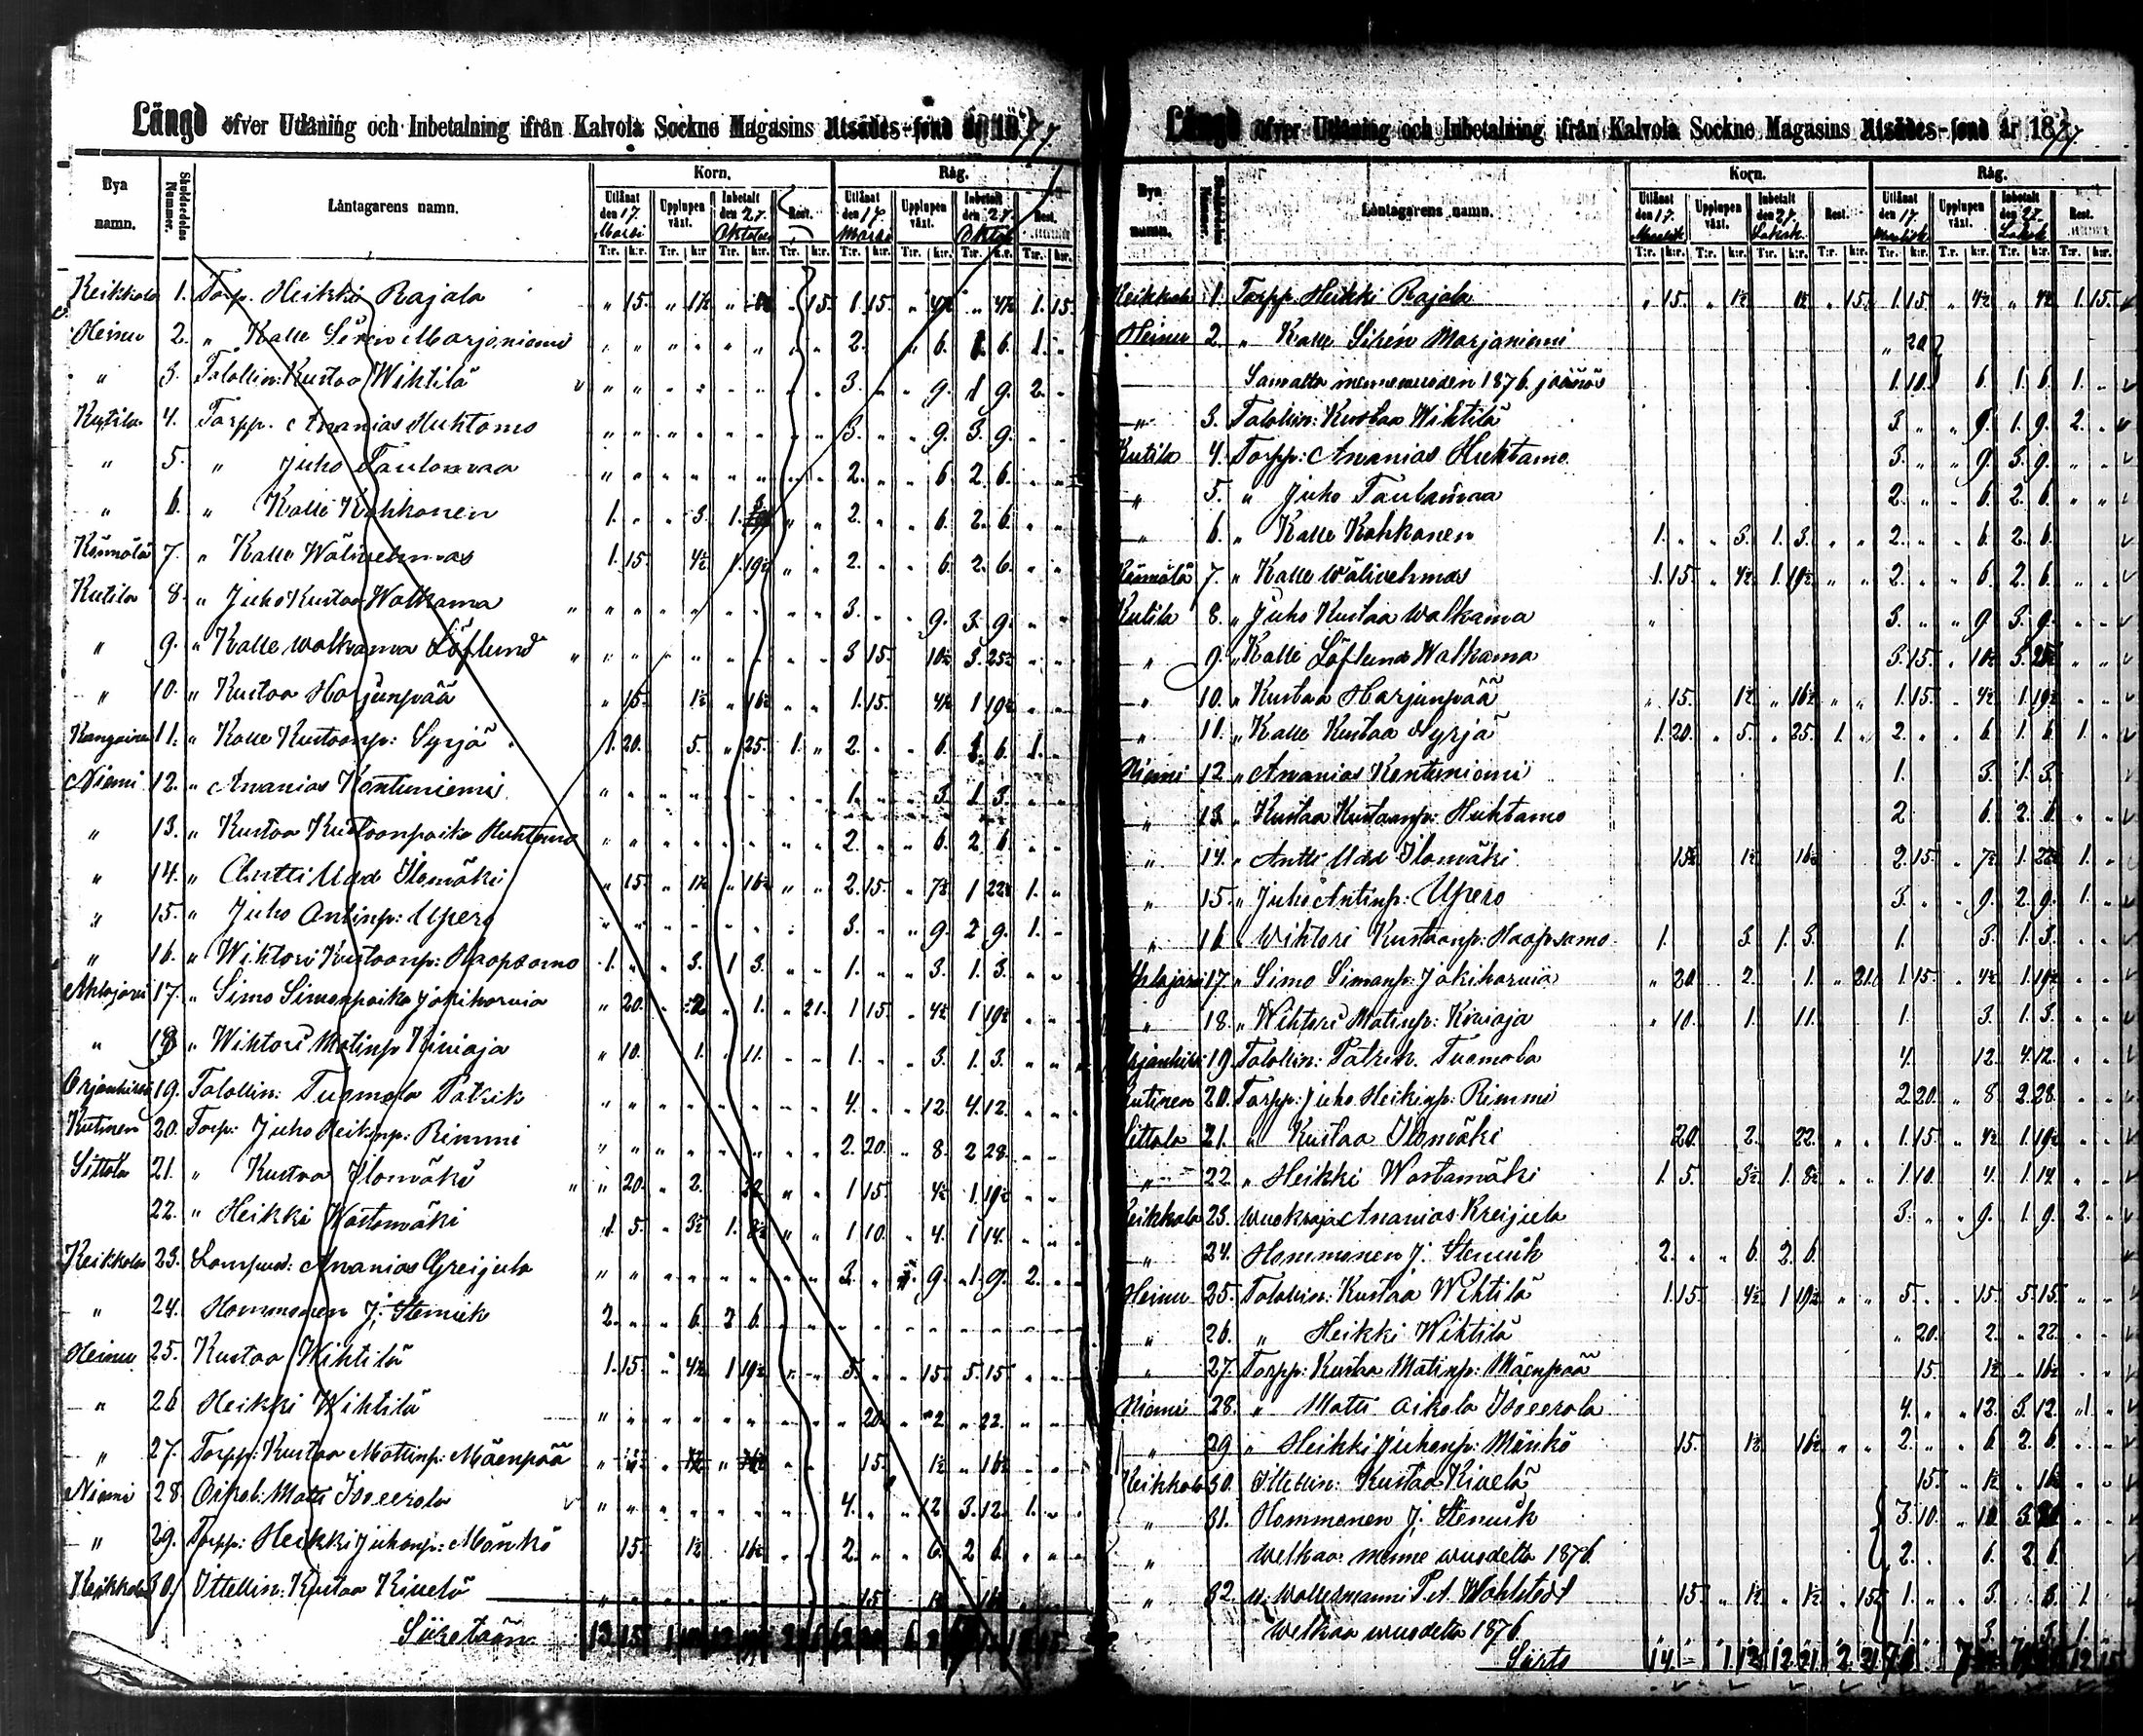 Längd öfver Utlåning och Inbetalning ifrån Kalvola Sockne Magasins Utsädes-fond år 1877.
Bya namn. Skuldsedelns Nummer. Låntagarens namn. Korn. Råg.
Utlånat den 17. Marsi Upplupen växt. Inbetalt den 27. Oktober Rest. Utlånat den 17. Marsi Upplupen växt. Inbetalt den 27. Oktob Rest.
T:r. k:r. T:r. k:r T:r. k:r. T:r. k:r. T:r. k:r. T:r. k:r. T:r. k:r. T:r. k:r.
Keikkala 1. Torp. Heikki Rajala " 15. " 1½ " " 15. 1. 15. " 4½ " 4½ 1. 15.
Heinu 2. " Kalle Siren Marjoniemi " " " " " " " " 2. " 6. 1. 6. 1. "
" 3. Talollin: Kustaa Wihtilä " " " " " " " " 3. " " 9. 1 9. 2. "
Kutila 4. Torpp. Ananias Huhtamo " " " " " " " " 3. " " 9. 3. 9. " "
" 5. " Juho Taulanwaa " " " " " " " " 2. " " 6. 2. 6. " "
" 6. " Kalle Kohkonen 1. " " 3. 1. 3 " " 2. " " 6. 2. 6. " "
Känmälä 7. " Kalle Wäliwehmas 1. 15. 4½ 1. 19½ " " 2. " " 6. 2. 6. " "
Kutila 8. " Juho Kustaa Walkama " " " " " " " " 3. " " 9. 3. 9. " "
" 9. " Kalle Walkama Löflund " " " " " " " " 3 15. " 10½ 3. 25½ " "
" 10. " Kustaa Harjunpää " 15. " 1½ " 16½ " " 1. 15. " 4½ 1 19½ " "
11. " Kalle Kustaanp: Syrjä 1. 20. " 5. " 25. 1. " 2. " " 6. 1. 6. 1. "
Niemi 12. " Ananias Kontuniemi " " " " " " " " 1. " " 3. 1. 3. " "
" 13. " Kustaa Kustaanpoika Huhtamo " " " " " " " " 2. " " 6. 2. 6. " "
" 14. " Antti Udd Ilomäki " 15. " 1½ " 16½ " " 2. 15. " 7½ 1 22½ 1. "
" 15. " Juho Antinp: Upero " " " " " " " " 3. " " 9. 2. 9. 1. "
" 16. " Wihtori Kustaanp: Haapsamo 1. " " 3. 1 3. " " 1. " " 3. 1. 3. " "
Ahlajärvi 17. " Simo Simonpoika Jokiharwia " 20. " 2. " 1. " 21. 1 15. " 4½ 1 19½ " "
" 18. " Wihtori Matinp Kiniaja " 10. " 1. " 11. " " 1. " " 3. 1. 3. " "
Orjanhirsi 19. Talollin: Tuomola Patrik " " " " " " " " 4. " " 12. 4. 12. " "
Kutinen 20. Torp: Juho Heikinp: Rimmi " " " " " " " " 2. 20. " 8. 2 28. " "
Sittala 21. " Kustaa Ilomäki " 20. " 2. 22 " " 1 15. " 4½ 1. 19½ " "
22. " Heikki Wastamäki 1. 5. " 3½ 1. 8½ " " 1 10. " 4. 1 14. " "
Keikkala 23. Ananias Greijula " " " " " " " " 3. " " 9. 1. 9. 2. "
" 24. Hommonen J: Stenvik 2. " " 6. 2 6. " " " " " " " " " "
Heinu 25. Kustaa Wihtilä 1. 15. " 4½ 1 19½ " " 5. " " 15 5. 15. " "
" 26 Heikki Wihtilä " " " " " " " " " 20. " 2 " 22. " "
" 27. Torpp: Kustaa Matinp: Mäenpää 15. " 1½ " 16½ " "
Niemi 28. Matti Iso-eerola " " " " " " " " 4. " " 12 3. 12. 1. "
" 29. Torpp: Heikki Juhonp: Mönkö 15. " 1½ 16½ " " 2. " " 6. 2 6. " "
Keikkala 30. Ittellin: Kustaa Kiuelä 15 1½ 16½
Siiretään 13. 15
Längd öfver Utlåning och Inbetalning ifrån Kalvola Sockne Magasins Utsädes-fond år 1877.
Bya namn. Skuldsedelns Nummer. Låntagarens namn. Korn. Råg.
Utlånat den 17. Maalisk Upplupen växt. Inbetalt den 27. Lokak. Rest. Utlånat den 17. Maalisk Upplupen växt. Inbetalt den 27. Lokak Rest.
T:r. k:r. T:r. k:r. T:r. k:r. T:r. k:r. T:r. k:r. T:r. k:r. T:r. k:r. T:r. k:r.
Keikkala 1. Torpp. Heikki Rajala " 15. " 1½ 1½ " 15. 1. 15. " 4½ " 4½ 1. 15.
Heinu 2. " Kalle Sirén Marjaniemi " 20
Samalta menne wuoden 1876 1. 10. 6. 1. 6. 1. "
" 3. Talollin: Kustaa Wihtilä 3. " " 9. 1. 9. 2. "
Kutila 4. Torpp: Ananias Huhtamo 3. " " 9. 3. 9. " "
" 5. " Juho Taulanwaa 2. " " 6. 2. 6. " "
" 6. " Kalle Kohkonen 1. " " 3. 1. 3. " " 2. " " 6. 2. 6. " "
Känmälä 7. " Kalle Wäliwehmas 1. 15. " 4½ 1. 19½ " " 2. " " 6. 2. 6. " "
Kutila 8. " Juho Kustaa Walkama " 3. " " 9. 3. 9. " "
" 9. " Kalle Löflund Walkama 3. 15. " 10½ 3. 25½ " "
" 10. " Kustaa Harjunpää " 15. 1½ " 16½ " " 1. 15. " 4½ 1. 19½ " "
" 11. " Kalle Kustaa Syrjä 1. 20. " 5. " 25. 1. " 2. " " 6. 1. 6. 1. "
Niemi 12. " Ananias Kontuniemi 1. 3. 1. 3.
" 13. " Kustaa Kustaanp: Huhtamo 2 6. 2. 6. " "
" 14. " Antti Udd Ilomäki 15. 1½ 16½ 2. 15. " 7½ 1. 22½ 1. "
" 15. " Juho Antinp: Upero 3. " " 9. 2. 9. 1. "
" 16. " Wihtori Kustaanp: Haapsamo 1. 3. 1. 3. 1. 3. 1. 3. " "
Ahlajärvi 17. " Simo Simonp: Jokiharwia " 20. 2. 1. " 21. 1. 15. " 4½ 1. 19½ " "
" 18. " Wihtori Matinp: Kiniaja " 10. 1. 11. 1. 3. 1. 3. " "
Orjanhirsi 19. Talollin: Patrik. Tuomola 4. 12. 4. 12. " "
Kutinen 20. Torpp: Juho Heikinp: Rimmi 2. 20. " 8 2. 28. " "
Sittala 21. " Kustaa Ilomäki 20. 2. 22. " " 1. 15. " 4½ 1. 19½ " "
" 22. " Heikki Wastamäki 1. 5. 3½ 1. 8½ " " 1. 10. 4. 1. 14. " "
Keikkala 23. Wuokraaja Ananias Kreijula 3. " " 9. 1. 9. 2. "
" 24. Hommonen J: Stenvik 2. " " 6. 2 6.
Heinu 25. Talollin: Kustaa Wihtilä 1. 15. 4½ 1 19½ " " 5. " " 15. 5. 15. " "
" 26. " Heikki Wihtilä " 20. 2. " 22. " "
" 27. Torpp: Kustaa Matinp: Mäenpää 15. 1½ " 16½ " "
Niemi 28. " Matti Aikola Iso eerola 4. " " 12. 3. 12. 1 "
" 29 " Heikki Juhonp: Mönkö 15. 1½ 16½ " " 2. " " 6 2. 6. " "
Keikkala 30. Ittellin: Kustaa Kiuelä 15. " 1½ " 16½ " "
" 31. Hommonen J: Stenvik 3. 10. " 10. 3. 20 " "
" Welkaa menne wuodelta 1876. 2. " 6. 2. 6.
" 32. Wallesmanni Wahlstedt 15. " 1½ " 1½ " 15 1. " " 3. 3. 1.
Welkaa wuodelta 1876 1. 3. 3 1.
Siirto 14. " 1. 12. 12. 21. 2. 21.